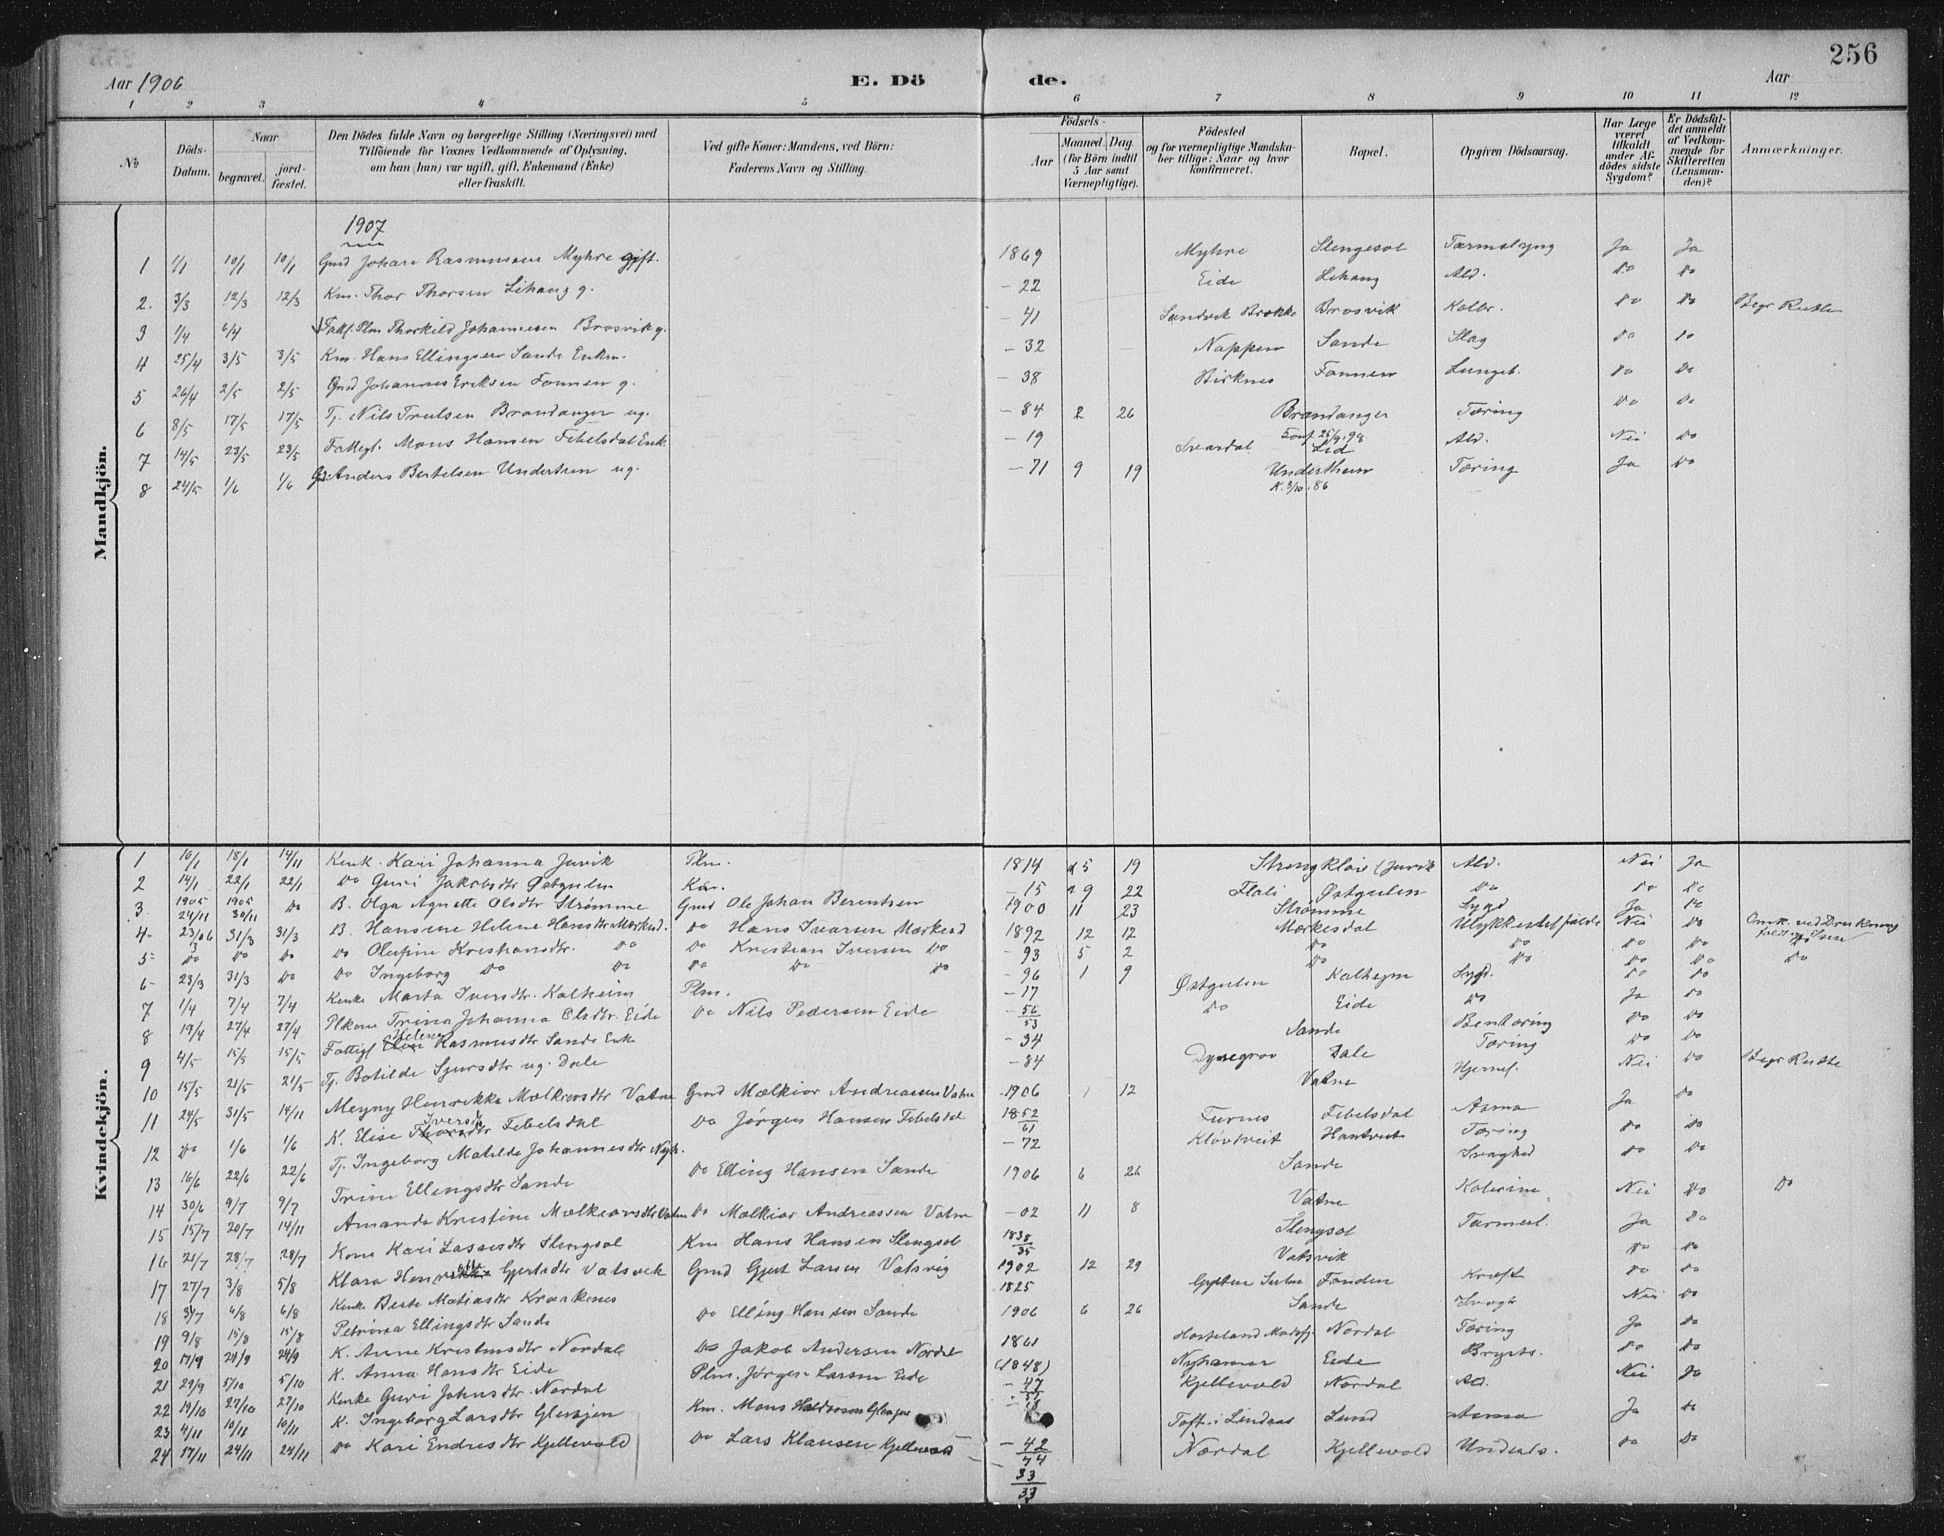 256
Aar 1906
E. Dö
de.
Aar
1 2 3 4 5 6 7 8 9 10 11 12
No
Döds-Datum.
Naar
begravet.
jord-fæstet.
Den Dödes fulde Navn og borgerlige Stilling (Næringsvei) med
Tilföiende for Voxnes Vedkommende af Oplysning,
om han (hun) var ugift, gift, Enkemand (Enke)
eller fraskilt.
Ved gifte Koner: Mandens, ved Börn:
Faderens Navn og Stilling.
Födsels-
Aar
Maaned. Dag.
(for Börn indtil
5 Aar samt
Værnepligtige).
Födested
og for værnepligtige Mandska-
ber tillige: Naar og hvor
konfirmeret.
Bopæl.
Opgiven Dödsaarsag.
Har Læge
været
tilkaldt
under Af-
dödes sidste
Sygdom?
Er Dödsfal-
det anmeldt
af Vedkom-
mende for
Skifteretten
(Lensman-
den)?
Anmærkninger.
Mandkjön.
1907
1 1/1 10/1 10/1 Gmd Johan Rasmussen Myhre gift. 1869 Myhre Slengesol Tarmslyng Ja Ja
2. 3/3 12/3 12/3 Km. Thor Thorsen Lihaug g. - 22 Eide Lihaug Ald. do do
3 1/4 6/4 Fattl. Plm Thorkild Johannesen Brosvik g. - 41 Sandvik Brekke Brosvik Kolbr. do do Begr Rutle
4 25/4 3/5 3/5 Km. Hans Ellingsen Sande Enkm. - 32 Nappen Sande Slag do do
5 26/4 2/5 2/5 Gmd Johannes Eriksen Fonnen g. - 38 Birknes Fonnen Lungeb. do do
6 8/5 17/5 17/5 Tj. Nils Trulsen Brandanger ug. - 84 2 26 Brandanger Tæring do do
Conf. 25/9.98
7 14/5 23/5 23/5 Fattigl. Mons Hansen Febelsdal Enk. - 19 Svardal Lid Ald. Nei do
8 24/5 1/6 1/6 Gd. Anders Bertelsen Undertun ug. - 71 9 19 Underthun Tæring Ja do
K. 3/10.86
Kvindekjön.
1 10/1 18/1 14/11 Kenk. Kari Johanna Juvik Plm. 1814 5 19 Juvik Ald. Nei Ja
2 14/1 22/1 22/1 do Guri Jakobsdtr Østgulen Km. - 15 9 22 Flali Østgulen do do do
3. 1905 24/11 1905 30/11 do B. Olga Agnette Olsdtr Strømme Gmd Ole Johan Berentsen 1900 11 23 Strømme Sygd Ja do
4- 23/06 3 31/3 31/3 B. Hansine Helene Hansdtr Mørkesd. do Hans Iversen Mørkesd 1892 12 12 Mørkesdal Ulykkestilfælde Nei do Omk. ved Drukning
5- do do do do Olufine Kristiansdtr. do do Kristian Iversen do - 93 5 2 do do do do do
6- 23/3 31/3 do do Ingeborg do do do do do - 96 1 9 do do do do
7 1/4 7/4 7/4 Kenke Marta Iversdtr. Kalheim Plm. - 17 Østgulen Kalheim Sygd. do do
8 19/4 27/4 27/4 Plkone Trina Johanna Olsdtr. Eide do Nils Pedersen Eide - 56/53 do Eide do Ja do
9 4/5 15/5 15/5 Fattigl Helene Rasmusdtr Sande Enke - 34 Sande Bentæring do do
10 15/5 21/5 21/5 Tj. Botilde Sjursdtr ug. Dale - 84 Dyregrov Dale Tæring do do
11 24/5 31/5 14/11 Meyny Henrikke Melkiorsdtr Vatne Gmd Melkior Andreassen Vatne 1906 1 12 Vatne Hjernef. Nei do Begr Rutle
12 do 1/6 1/6 K. Elise Iversdtr Febelsdal do Jørgen Hansen Febelsdal 1852/61 Furnes Febelsdal Asma Ja do
13 16/6 22/6 22/6 Tj. Ingeborg Matilde Johannesdtr - 72 Kløvtveit Hantveit Tæring do do
14 30/6 9/7 9/7 Trine Ellingsdtr Sande do Elling Hansen Sande 1906 6 26 Sande Svaghed do do
15 15/7 20/7 14/11 Amanda Kristine Melkiorsdtr Vatne do Melkior Andreassen Vatne - 02 11 8 Vatne Kolerine Nei do do
16 21/7 28/7 28/7 Kone Kari Lassesdtr Slengsol Km. Hans Hansen Slengsol 1838/35 Slengsol Tarmesl. Ja do
17 27/7 3/8 5/8 Klara Gjertsdtr Vatsvik Gmd Gjert Larsen Vatsvig 1902 12 29 Vatsvik do do
18 3/7 6/8 6/8 Kenke Berte Matiasdtr Kraakenes 1825 Fonden Kræft do do
19 9/8 15/8 15/8 Petrina Ellingsdtr Sande do Elling Hansen Sande 1906 6 26 Sande Svagh Nei do
20 17/9 24/9 24/9 K. Anne Kristensdtr Nordal do Jakob Andersen Nordal 1861 Nordal Tæring Ja do
21 29/9 5/10 5/10 K. Anna Hansdtr Eide Plm. Jørgen Larsen Eide (1848) Nyhamar Eide Brysts. do do
22 19/10 27/10 27/10 Kenke Guri Johnsdtr. Nordal - 47 Kjellevold Nordal Ald. Nei Ja
23 4/11 10/11 10/11 K. Ingeborg Larsdtr Glenjen Km. Mons Haldorsen Glenjen Toft i Lindaas Lund Asma Ja do
24 17/11 24/11 24/11 do Kari Endresdtr Kjellevold do Lars Klausen Kjellevold - 42/74 Nordal Kjellevold Underls. do do
33
33